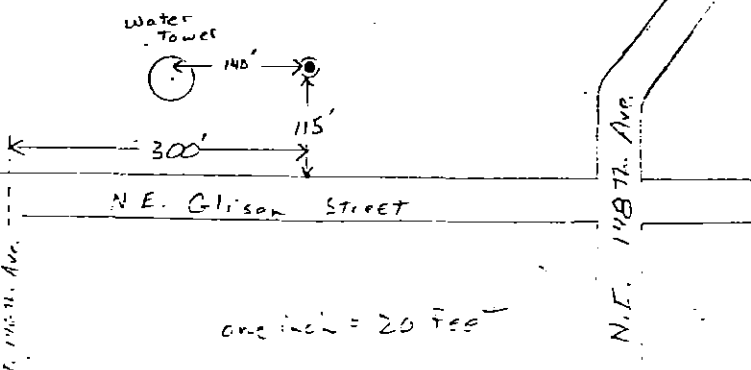 Water
Tower
140'
115'
300'
N.E. Glisan Street
N.E. 148 Th. Ave.
one inch = 20 Feet
Ave.